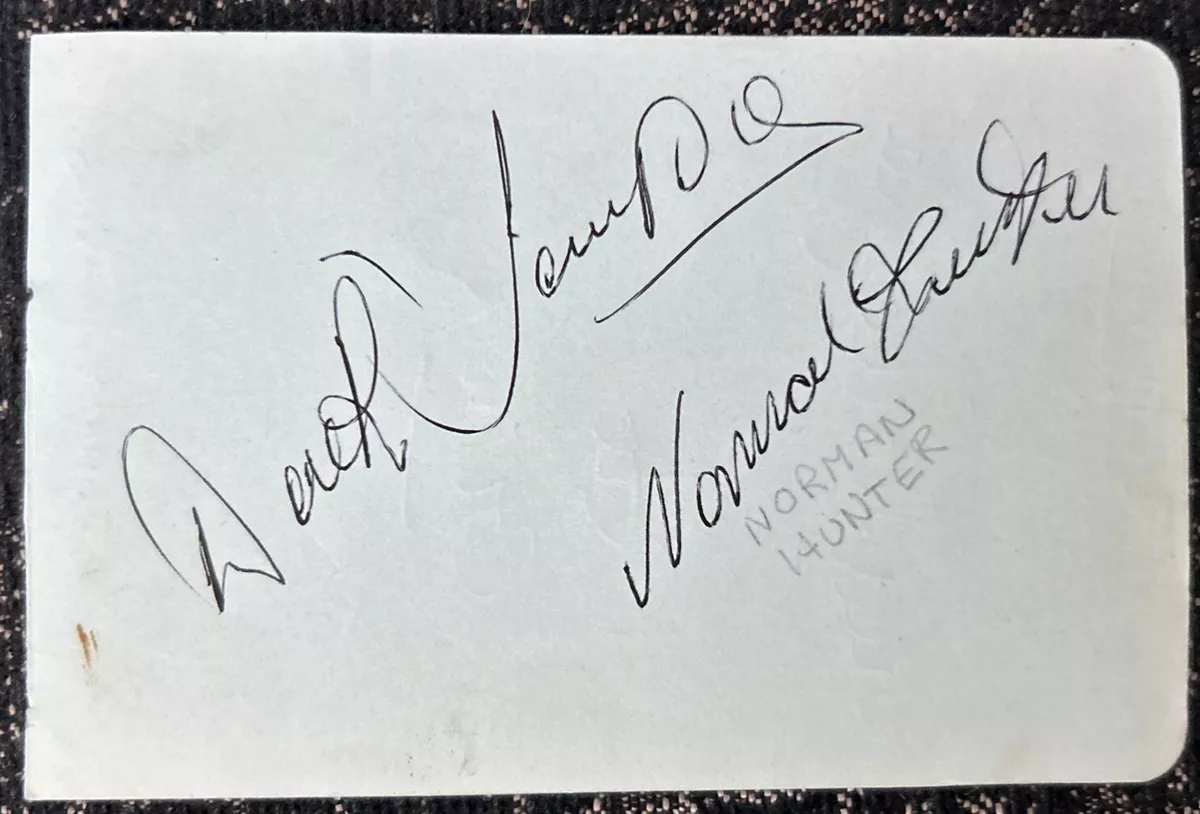 Derek Temple
Norman Hunter
NORMAN
HUNTER